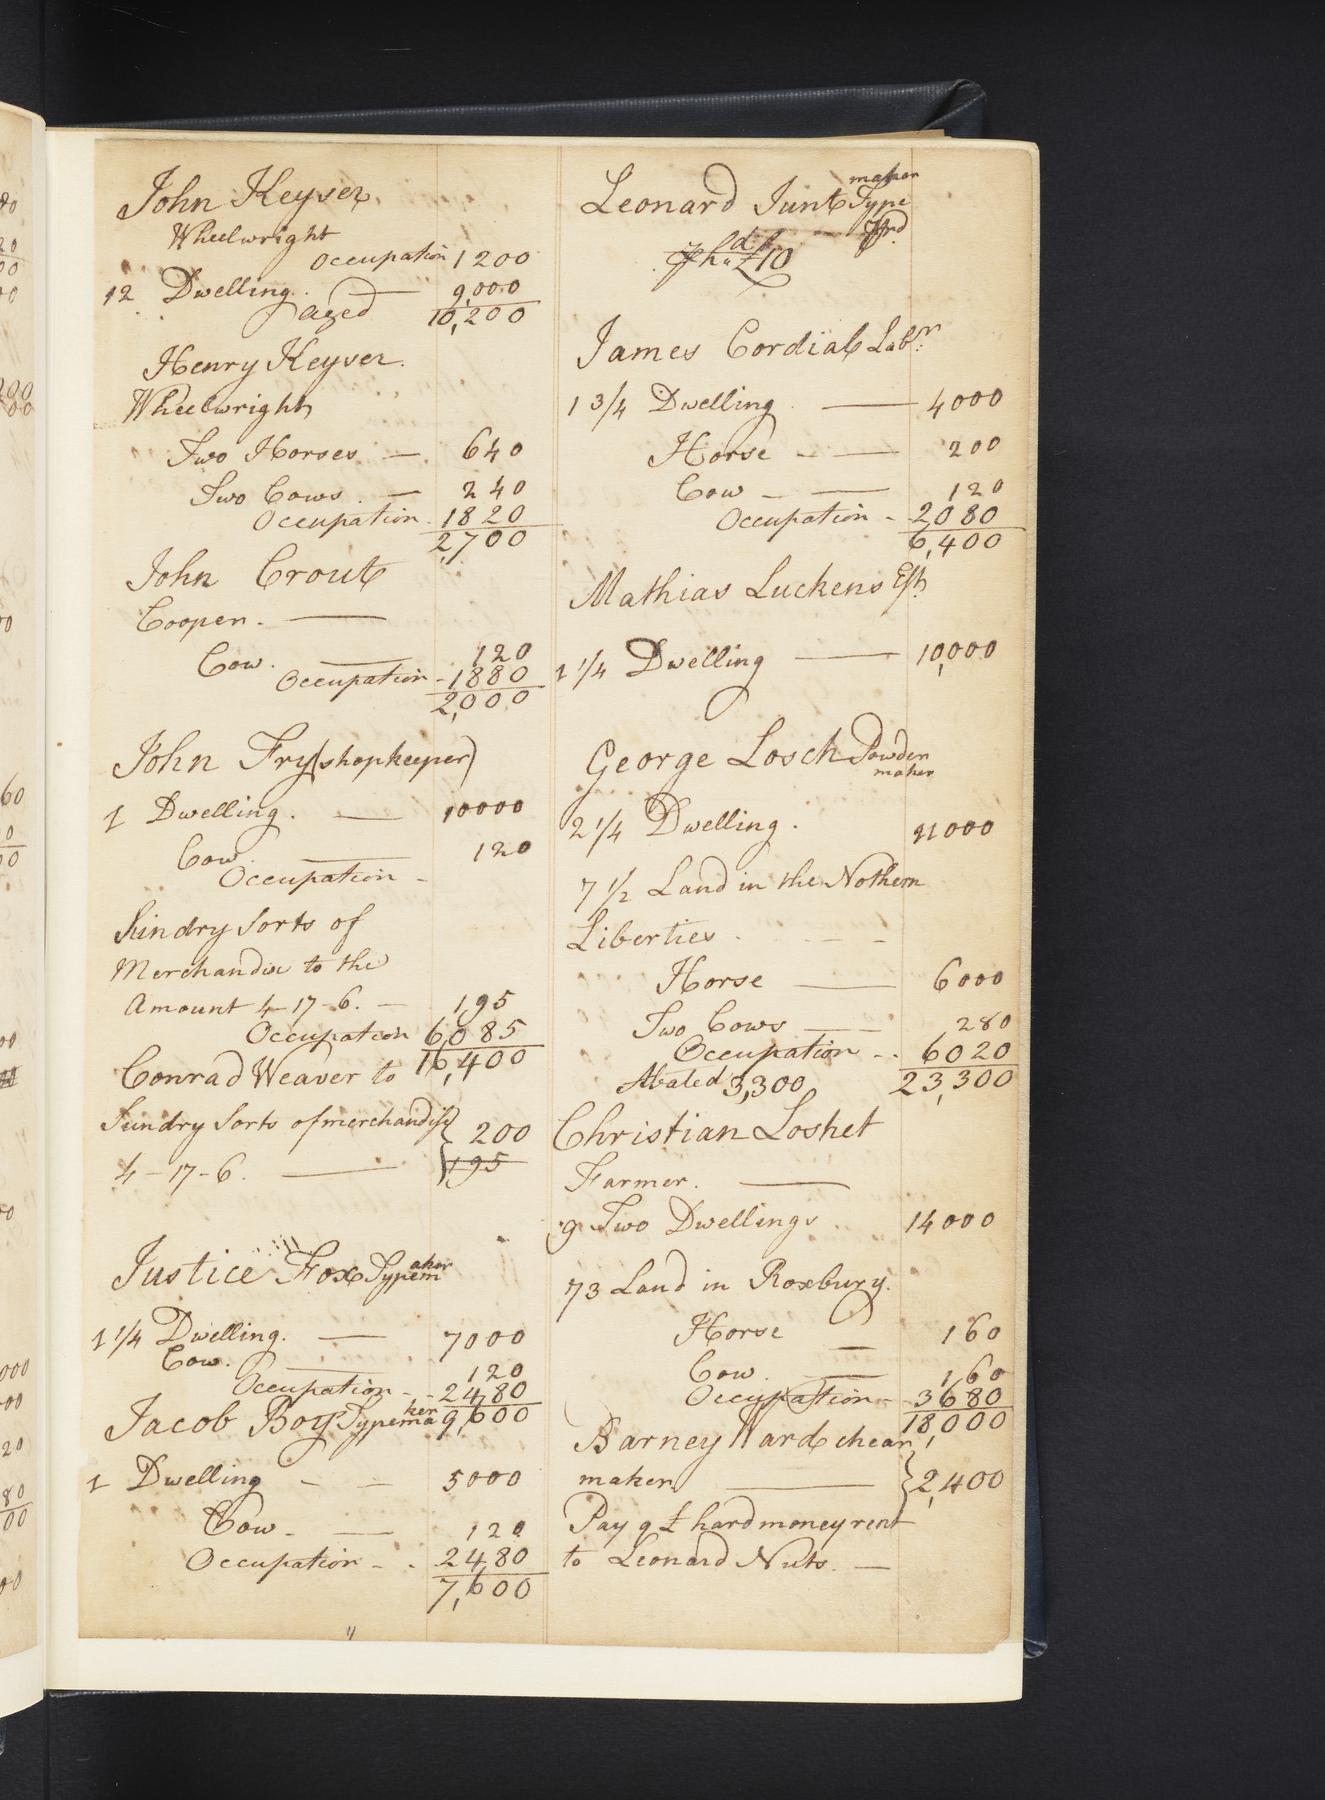 John Keyser
Wheelwright
Occupation 1200
12 Dwelling. — 9,000
aged 10,200
Henry Keyser.
Wheelwright
Two Horses — 640
Two Cows. — 240
Occupation. 1820
2,700
John Crout
Cooper. —
Cow. — 120
Occupation - 1880
2,000
John Fry (shopkeeper)
1 Dwelling. — 10000
Cow. — 120
Occupation -
Sundry Sorts of
Merchandize to the
Amount 4-17-6. — 195
Occupation 6,085
16,400
Conrad Weaver to
Sundry Sorts of merchandise } 200
4-17-6. — 195
Justice Fox Typemaker
1 1/4 Dwelling. — 7000
Cow. — 120
Occupation - - 2480
9,600
Jacob Boy Typemaker
1 Dwelling — — 5000
Cow - — 120
Occupation - - 2480
7,600
Leonard Junt Type maker
£10
James Cordial Labr.
1 3/4 Dwelling. — 4000
Horse - — 200
Cow - — 120
Occupation - 2080
6,400
Mathias Luckens Est.
1 1/4 Dwelling — 10,000
George Losch Powder maker
2 1/4 Dwelling. 11000
7 1/2 Land in the Nothern
Liberties - - -
Horse — 6000
Two Cows — 280
Occupation - - 6020
Abated 3,300 23,300
Christian Loshet
Farmer. —
9 Two Dwellings 14000
73 Land in Roxbury.
Horse — 160
Cow — 160
Occupation - 3680
18,000
Barney Ward chear
maker — } 2,400
Pay 9 £ hard money rent
to Leonard Nuts. —